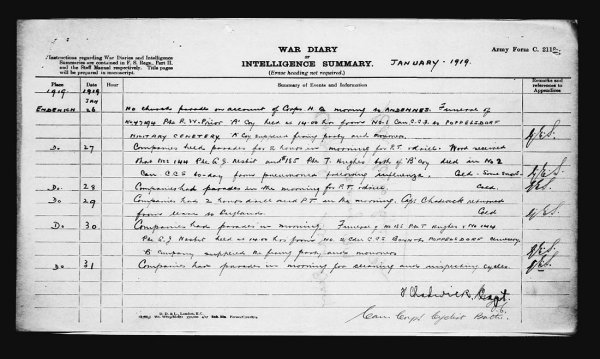 WAR DIARY
or
INTELLIGENCE SUMMARY.
(Erase heading not required.)
JANUARY - 1919.
Army Form C. 2118.
Instructions regarding War Diaries and Intelligence
Summaries are contained in F. S. Regs., Part II.
and the Staff Manual respectively. Title pages
will be prepared in manuscript.
Place Date Hour Summary of Events and Information Remarks and references to Appendices
1919 1919
JAN
ENDENICH 26 No church parades on account of Corps H.Q. moving to ANDENNES. Funeral of
Pte R.W. Prior 'A' Coy held at 14.00 hrs from No 1 Can C.C.S. to POPPELSDORF
MILITARY CEMETERY. A Coy supplied firing party and
Do 27 Companies held parades for 2 hours in morning for P.T. & drill. Word received
that No 144 Pte G.J. Nesbit and 185 Pte T. Hughes both of 'B' Coy died in No 2
Can CCS to-day from pneumonia following influenza. Cold. Some snow.
Do 28 Companies had parades in the morning for P.T. & drill. Cold.
Do 29 Companies had 2 hours drill and PT in the morning. Capt Chadwick returned
from leave to England. Cold
Do 30 Companies had parades in morning. Funeral of No 185 Pte T Hughes & No 144
Pte G.J Nesbit held at 14.00 hrs from No 2 Can C.C.S POPPELSDORF Cemetery
'B' Company supplied the firing party and
Do 31 Companies had parades in morning for cleaning and inspecting cycles.
Chadwick, Capt.
Can. Corps Cyclist Battn.
D. D. & L., London, E.C.